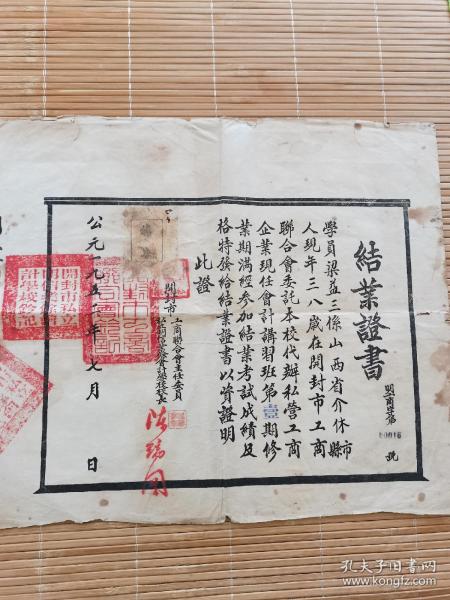 結業證書
開工商書字第
00016
號
學員梁益三係山西省介休市縣
人現年三八歲在開封市工商
聯合會委託本校代辦私營工商
企業現任會計講習班第壹期修
業期滿經參加結業考試成績及
格特發給結業證書以資證明
此證
開封市工商聯合會主任委員
公元一九五
年七月
日
孔夫子旧书网
www.kongfz.com